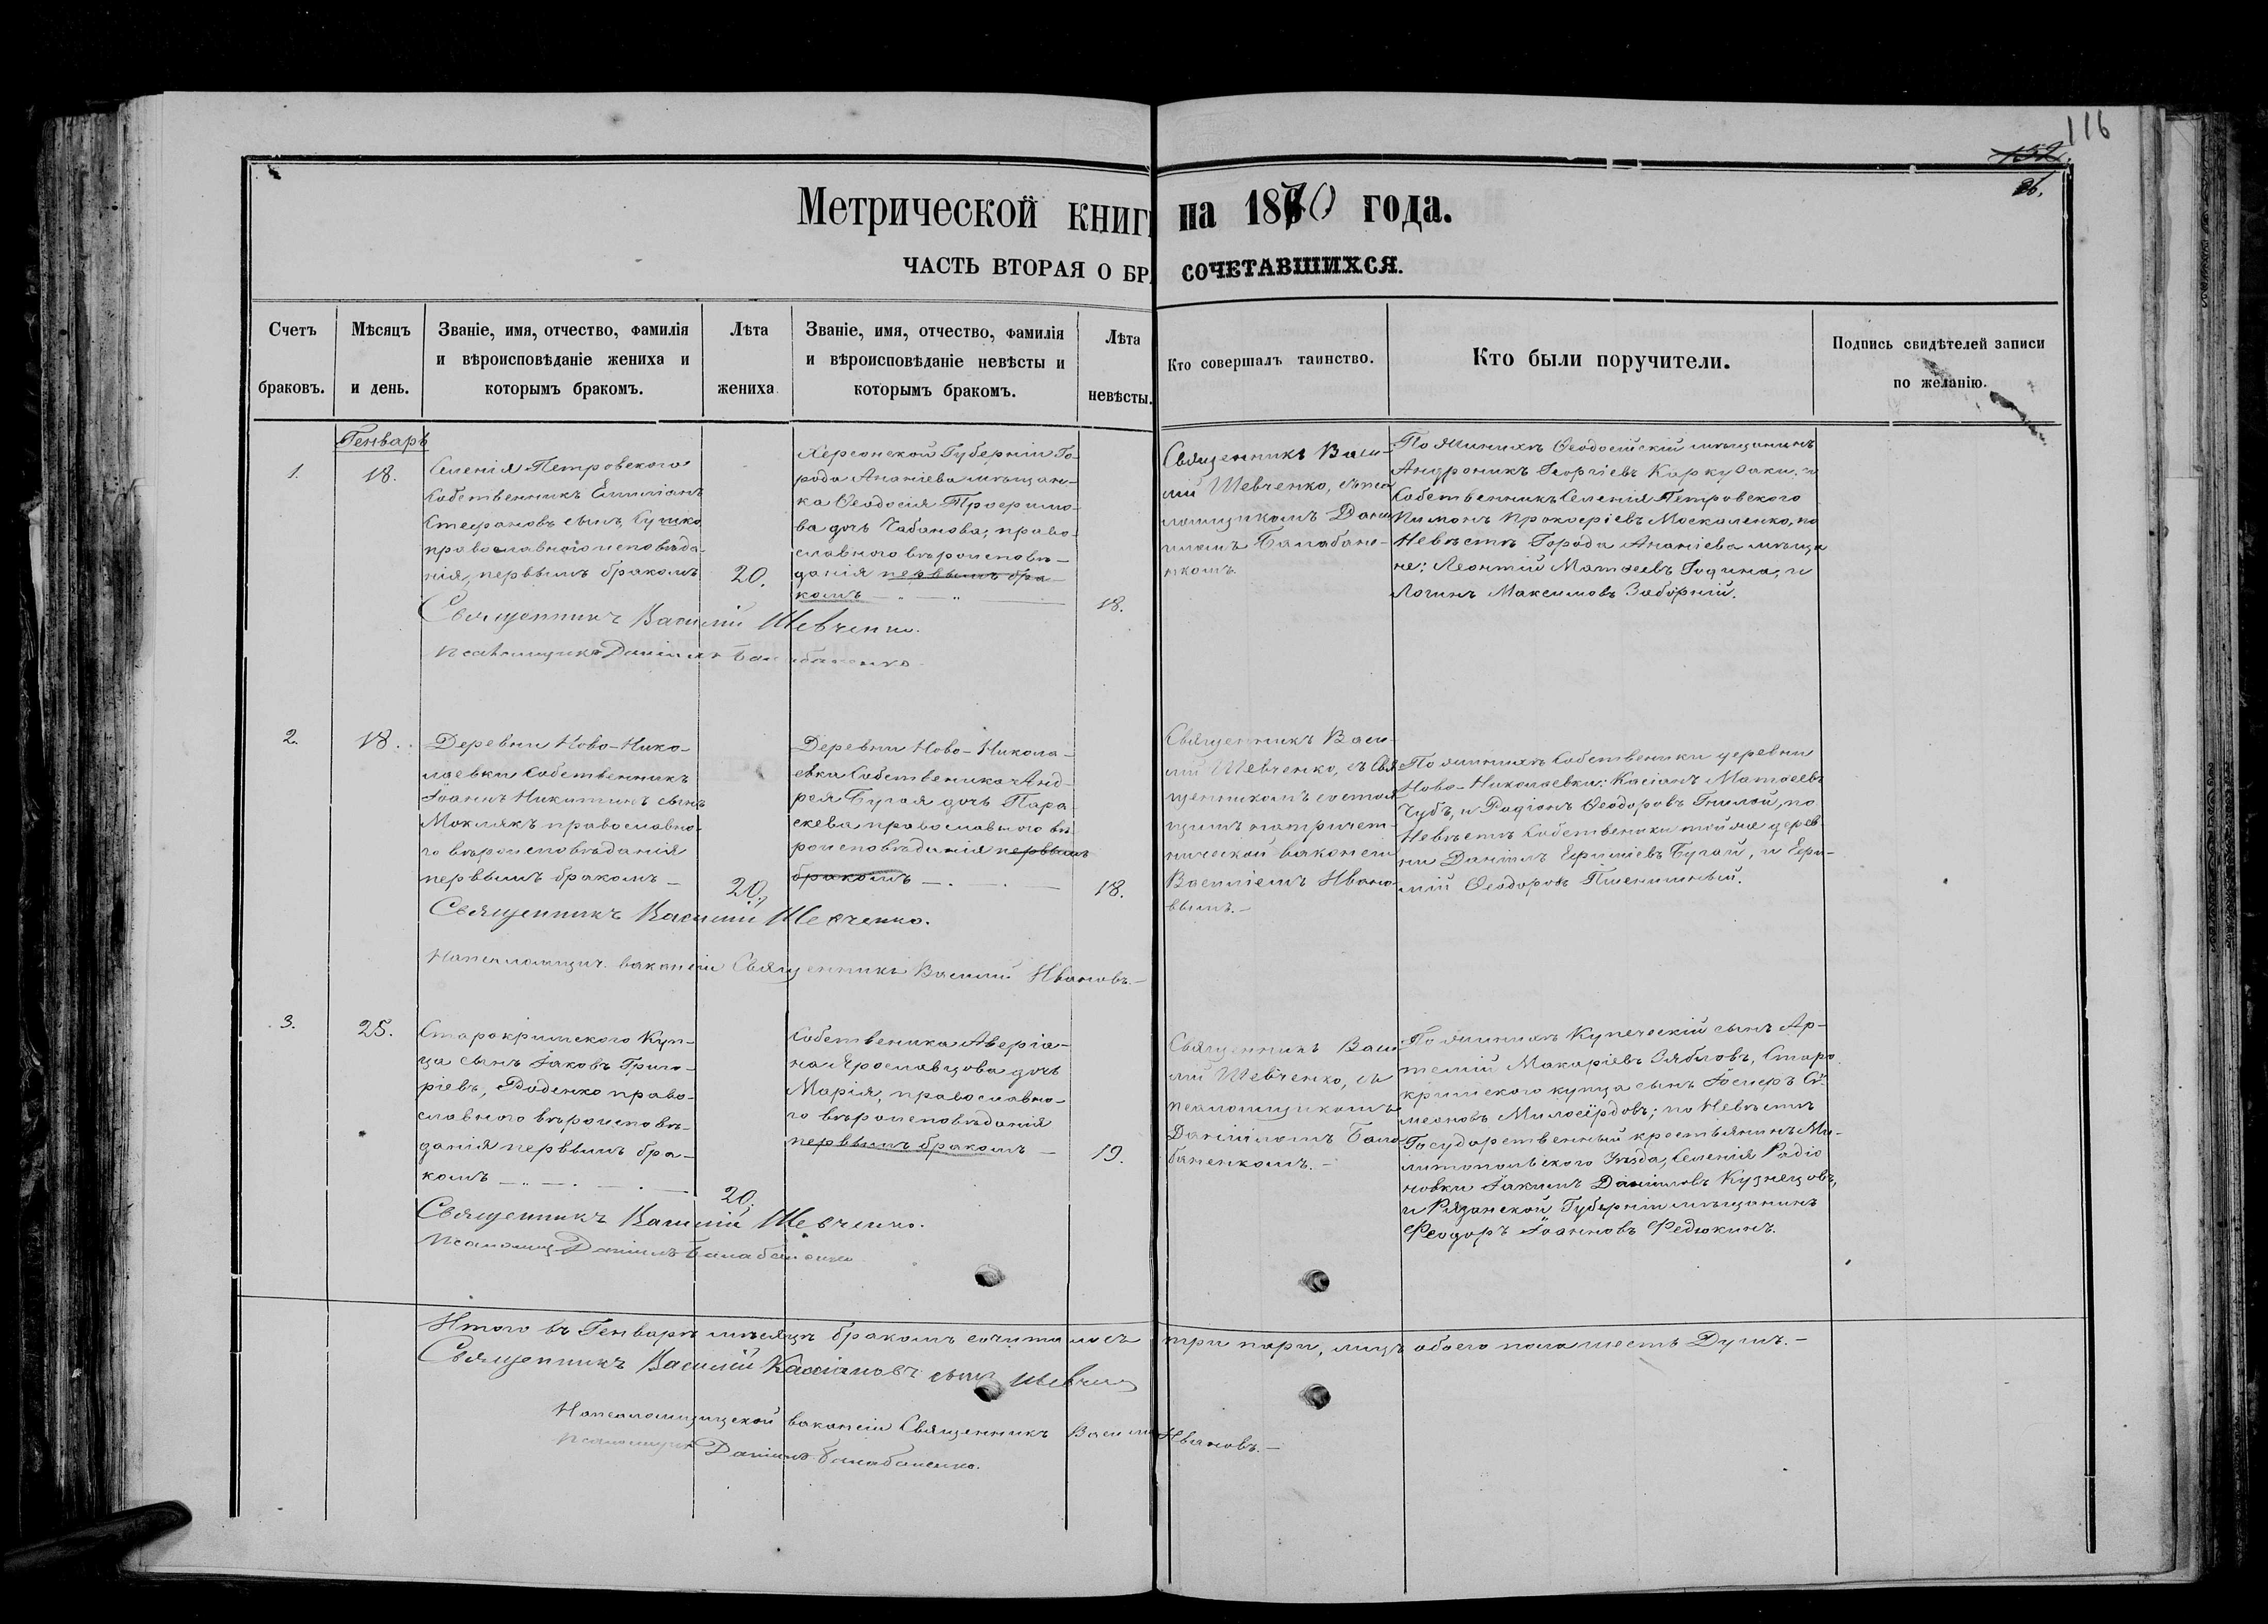 116
152.
26.
Метрической книги на 1870 года.
ЧАСТЬ ВТОРАЯ О БРА СОЧЕТАВШИХСЯ.
Счетъ
браковъ.
Мѣсяцъ
и день.
Званіе, имя, отчество, фамилія
и вѣроисповѣданіе жениха и
которымъ бракомъ.
Лѣта
жениха
Званіе, имя, отчество, фамилія
и вѣроисповѣданіе невѣсты и
которымъ бракомъ.
Лѣта
невѣсты.
Кто совершалъ таинство.
Кто были поручители.
Подпись свидѣтелей записи
по желанію.
Генварь
1.
18.
Селенія Петровского
Собственникъ Емиліанъ
Стефановъ сынъ
православного исповѣда-
нія, первымъ бракомъ
20.
Херсонской Губерніи Го-
рода Ананіева мѣщан-
ка Ѳеодосія Трофимо-
ва дочь Чабанова, право-
славного вѣроисповѣ-
данія первымъ бра-
комъ
18.
Священникъ Васи-
лій Шевченко, съ пса
ломщикомъ Дани
иломъ Балабане-
нкомъ.
По женихѣ Ѳеодосійскій мѣщанинъ
Андроникъ Георгіевъ и
Собственникъ Селенія Петровского
Пимонъ Прокофіевъ Москаленко, по
Невѣстѣ Города Ананіева мѣща
не: Леонтій Матѳеевъ Година, и
Логинъ Максимовъ Заборній.
Священникъ Василій Шевченко.
Псаломщикъ Даніилъ Балабаненко
2.
18.
Деревни Ново-Нико-
лаевки Собственникъ
Іоаннъ Никитинъ сынъ
Моклякъ православно-
го вѣроисповѣданія
первымъ бракомъ —
20.
Деревни Ново-Никола-
евки Собственика Анд-
рея Бугая дочь Пара-
скева православного вѣ-
роисповѣданія первымъ
бракомъ —
18.
Священникъ Васи-
лій Шевченко, съ Свя
щенникомъ состоя
щимъ на причет-
нической ваконсіи
Василіемъ Ивано-
вымъ.—
По женихѣ Собственники деревни
Ново-Николаевки: Касіанъ Матѳеевъ
Чубъ, и Радіонъ Ѳеодоровъ Гнилой, по
Невѣстѣ Собственики той же дерев
ни Даніилъ Ефиміевъ Бугай, и Ефи-
мій Ѳеодоровъ Пшенишный.
Священникъ Василій Шевченко.
На псаломщич. ваконсіи Священникъ Василій Ивановъ.—
3.
25.
Старокримского Куп-
ца сынъ Іаковъ Григо-
ріевъ, Роденко право-
славного вѣроисповѣ-
данія первымъ бра-
комъ
20.
Собственика Аверіа-
на Ярославцова дочь
Марія, православно-
го вѣроисповѣданія
первымъ бракомъ —
19.
Священникъ Васи-
лій Шевченко, съ
псаломщикомъ
Даніиломъ Бала-
баненкомъ.—
По женихѣ Купеческій сынъ Ар-
темій Макаріевъ Зябловъ, Старо
кримского купца сынъ Іосифъ Си-
меоновъ Милосердовъ; по Невѣстѣ
Государственный крестьянинъ Ми-
литопольского Уѣзда, Селенія Радіо
новки Іакимъ Даніиловъ Кузнецовъ,
и Рязанской Губерніи мѣщанинъ
Феодоръ Іоанновъ Федюкинъ.
Священникъ Василій Шевченко.
Псаломщ Даніилъ Балабаненко
Итого въ Генварѣ мѣсяцѣ бракомъ сочиталось три пари, лицъ обоего пола шесть Душъ.—
Священникъ Василій Касіановъ сынъ Шевченко
На псаломщицкой ваконсіи Священникъ Василій Ивановъ.—
Псаломщикъ Даніилъ Балабаненко.